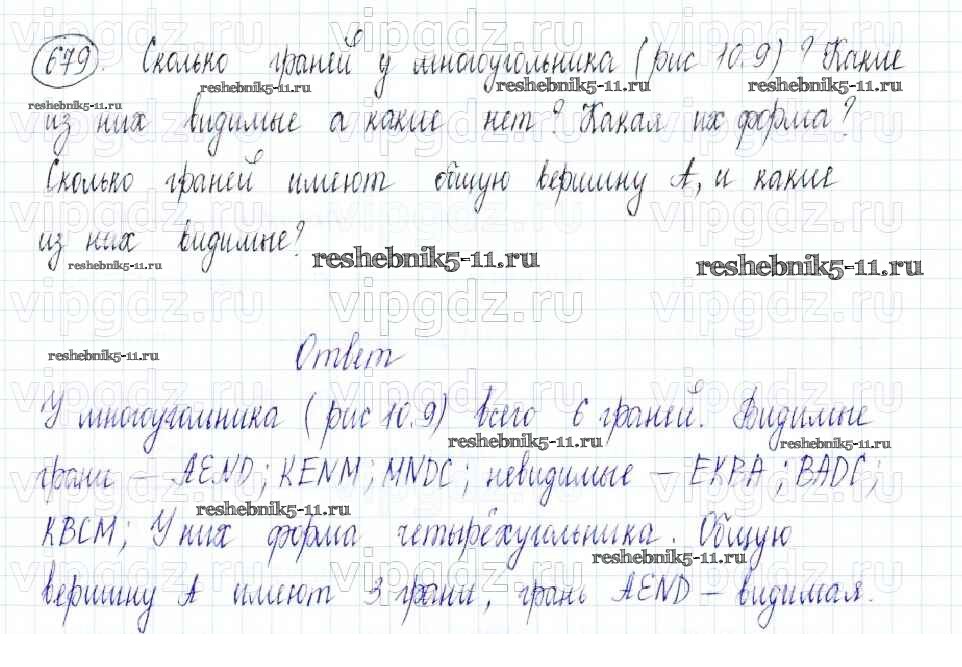 679. Сколько граней у многоугольника (рис 10.9)? Какие
из них видимые а какие нет? Какая их форма?
Сколько граней имеют общую вершину A, и какие
из них видимые?
Ответ
У многоугольника (рис 10.9) всего 6 граней. Видимые
грани — AEND; KENM; MNDC; невидимые — EKBA; BADC;
KBCM; У них форма четырёхугольника. Общую
вершину A имеют 3 грани, грань AEND – видимая.
vipgdz.ru
reshebnik5-11.ru